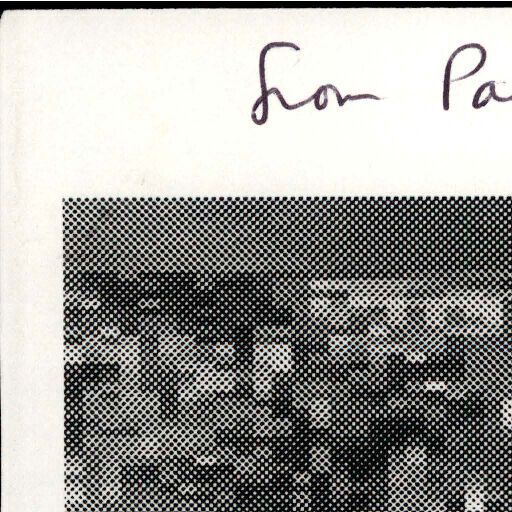 from Pa